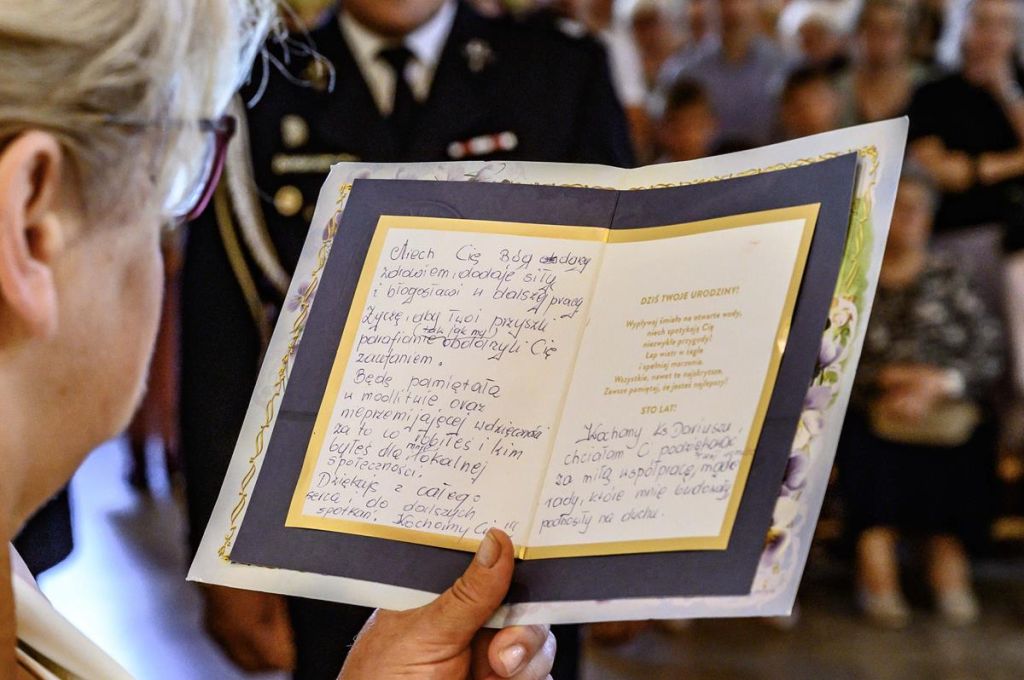 Niech Cię Bóg obdarzy
zdrowiem i dodaje siły
i błogosławi w dalszej pracy
Życzę, aby Twoi przyszli
parafianie (tak jak my) obdarzyli Cię
zaufaniem.
Będę pamiętała
w modlitwie oraz
nieprzemijającej wdzięczności
za to co robiłeś i kim
byłeś dla mnie i lokalnej
społeczności.
Dziękuję z całego
serca i do dalszych
spotkań. Kochamy Cię
DZIŚ TWOJE URODZINY!
Wypływaj śmiało na otwarte wody,
niech spotykają Cię
niezwykłe przygody!
Łap wiatr w żagle
i spełniaj marzenia.
Wszystkie, nawet te najskrytsze.
Zawsze pamiętaj, że jesteś najlepszy!
STO LAT!
Kochany Ks Dariuszu,
chciałam Ci podziękować
za miłą współpracę, mądre
rady, które mnie budowały
podnosiły na duchu.